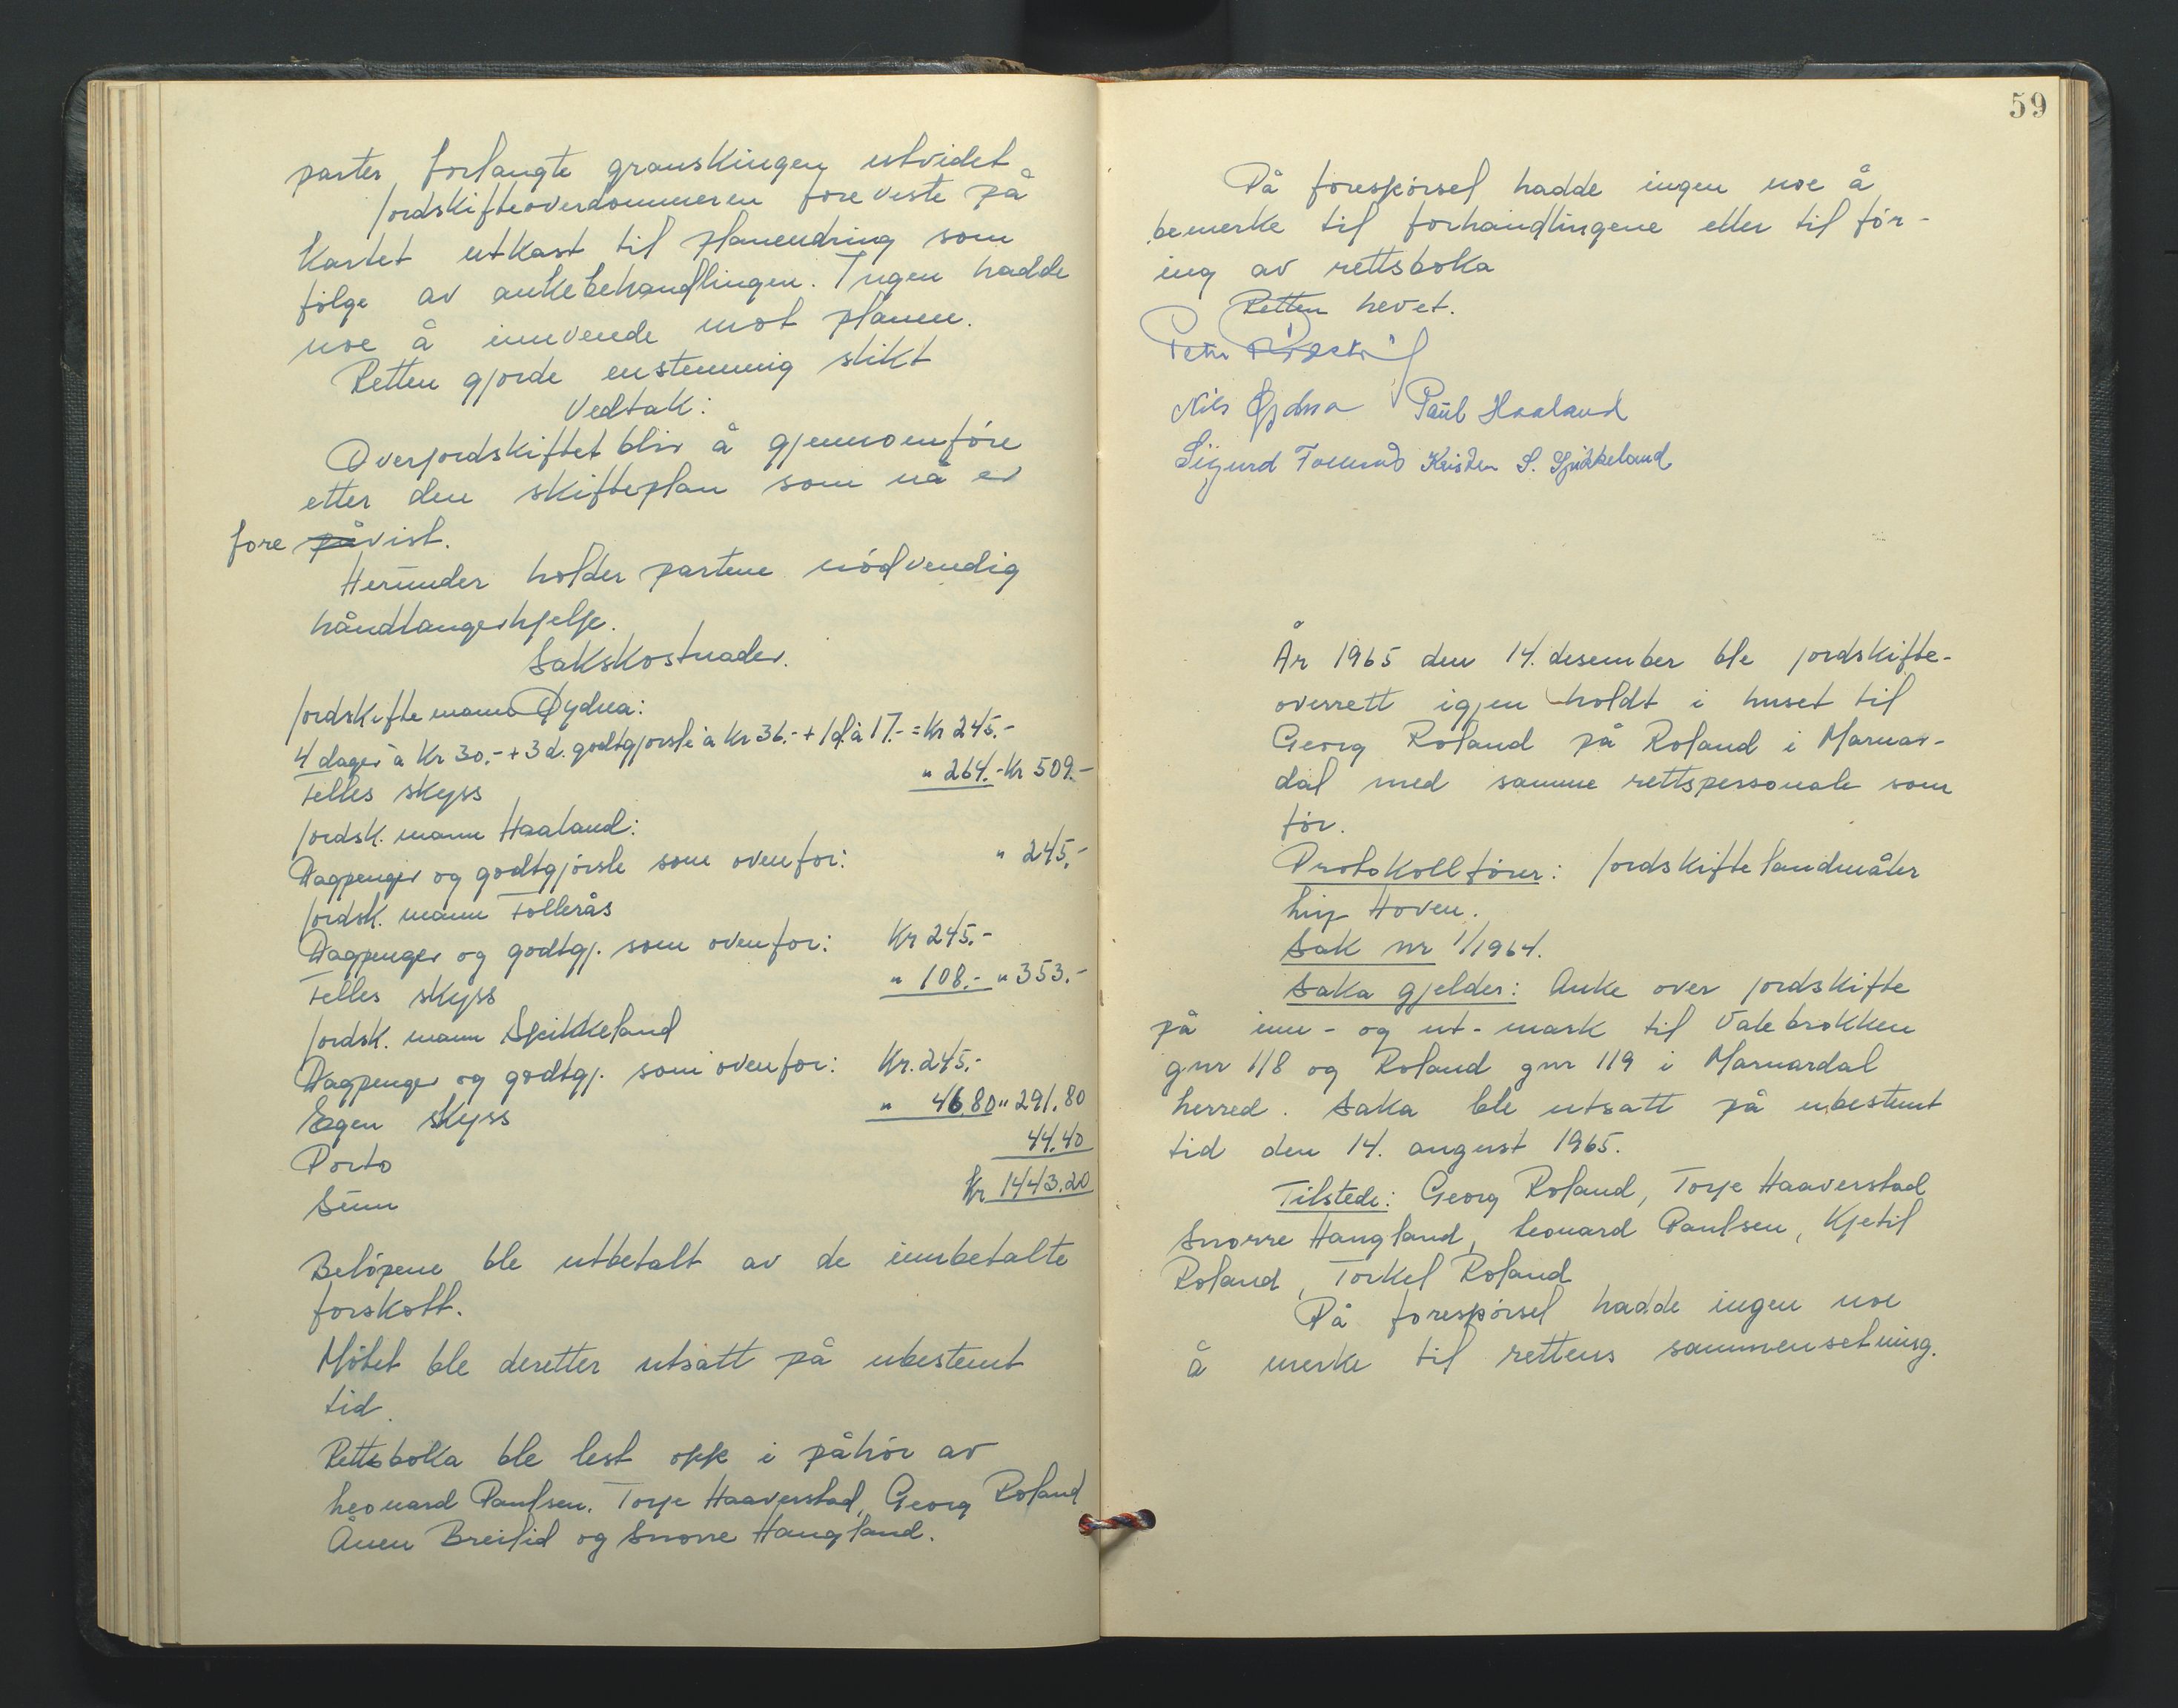 parter forlangte granskingen utvidet
Jordskifteoverdommeren foreviste på
Kartet utkast til planendring som
følge av ankebehandlingen. Ingen hadde
noe å innvende mot planen.
Retten gjorde enstemmig slikt
Vedtak:
Overjordskiftet blir å gjennomføre
etter den skifteplan som nå er
fore påvist.
Herunder holder partene nødvendig
håndlangerhjelp.
Sakskostnader.
Jordskiftemann Øydna:
4 dager à Kr 30.- + 3 d. godtgjørsle à Kr 36.- + 1 d. à 17.- = Kr 245.-
Felles skyss " 264.- Kr 509.-
Jordsk. mann Haaland:
Dagpenger og godtgjørsle som ovenfor: " 245.-
Jordsk. mann Follerås
Dagpenger og godtgj. som ovenfor: Kr 245.-
Felles skyss " 108.- " 353.-
Jordsk. mann Spikkeland
Dagpenger og godtgj. som ovenfor: Kr. 245.-
Egen skyss " 46.80 " 291.80
Porto 44.40
Sum Kr 1443.20
Beløpene ble utbetalt av de innbetalte
forskott.
Møtet ble deretter utsatt på ubestemt
tid.
Rettsboka ble lest opp i påhør av
Leonard Paulsen, Torje Haaverstad, Georg Roland
Ånen Breilid og Snorre Haugland.
59
På forespørsel hadde ingen noe å
bemerke til forhandlingene eller til før-
ing av rettsboka
Retten hevet.
Nils Øydna Paul Haaland
Sigurd Follerås Kristen S. Spikkeland
År 1965 den 14. desember ble jordskifte-
overrett igjen holdt i huset til
Georg Roland på Roland i Marnar-
dal med samme rettspersonale som
før.
Protokollfører: Jordskiftelandmåler
Hoven.
Sak nr 1/1964.
Saka gjelder: Anke over jordskifte
på inn- og ut-mark til Valebrokken
gnr 118 og Roland gnr 119 i Marnardal
herred. Saka ble utsatt på ubestemt
tid den 14. august 1965.
Tilstede: Georg Roland, Torje Haaverstad
Snorre Haugland, Leonard Paulsen, Kjetil
Roland, Torkel Roland
På forespørsel hadde ingen noe
å merke til rettens sammensetning.